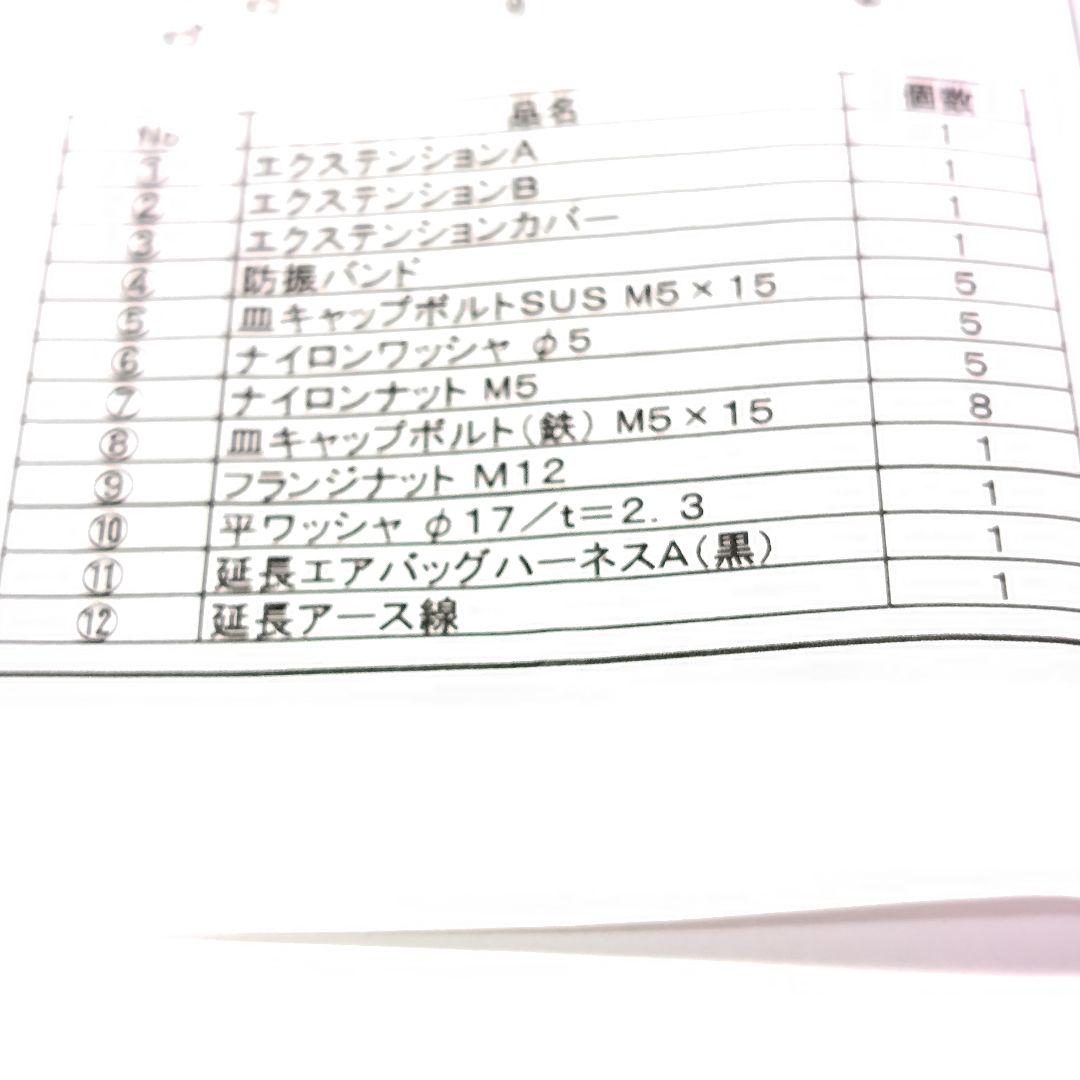 No 品名 個数
① エクステンションA 1
② エクステンションB 1
③ エクステンションカバー 1
④ 防振バンド 1
⑤ 皿キャップボルトSUS M5×15 5
⑥ ナイロンワッシャ φ5 5
⑦ ナイロンナット M5 5
⑧ 皿キャップボルト(鉄) M5×15 8
⑨ フランジナット M12 1
⑩ 平ワッシャ φ17/t=2.3 1
⑪ 延長エアバッグハーネスA(黒) 1
⑫ 延長アース線 1